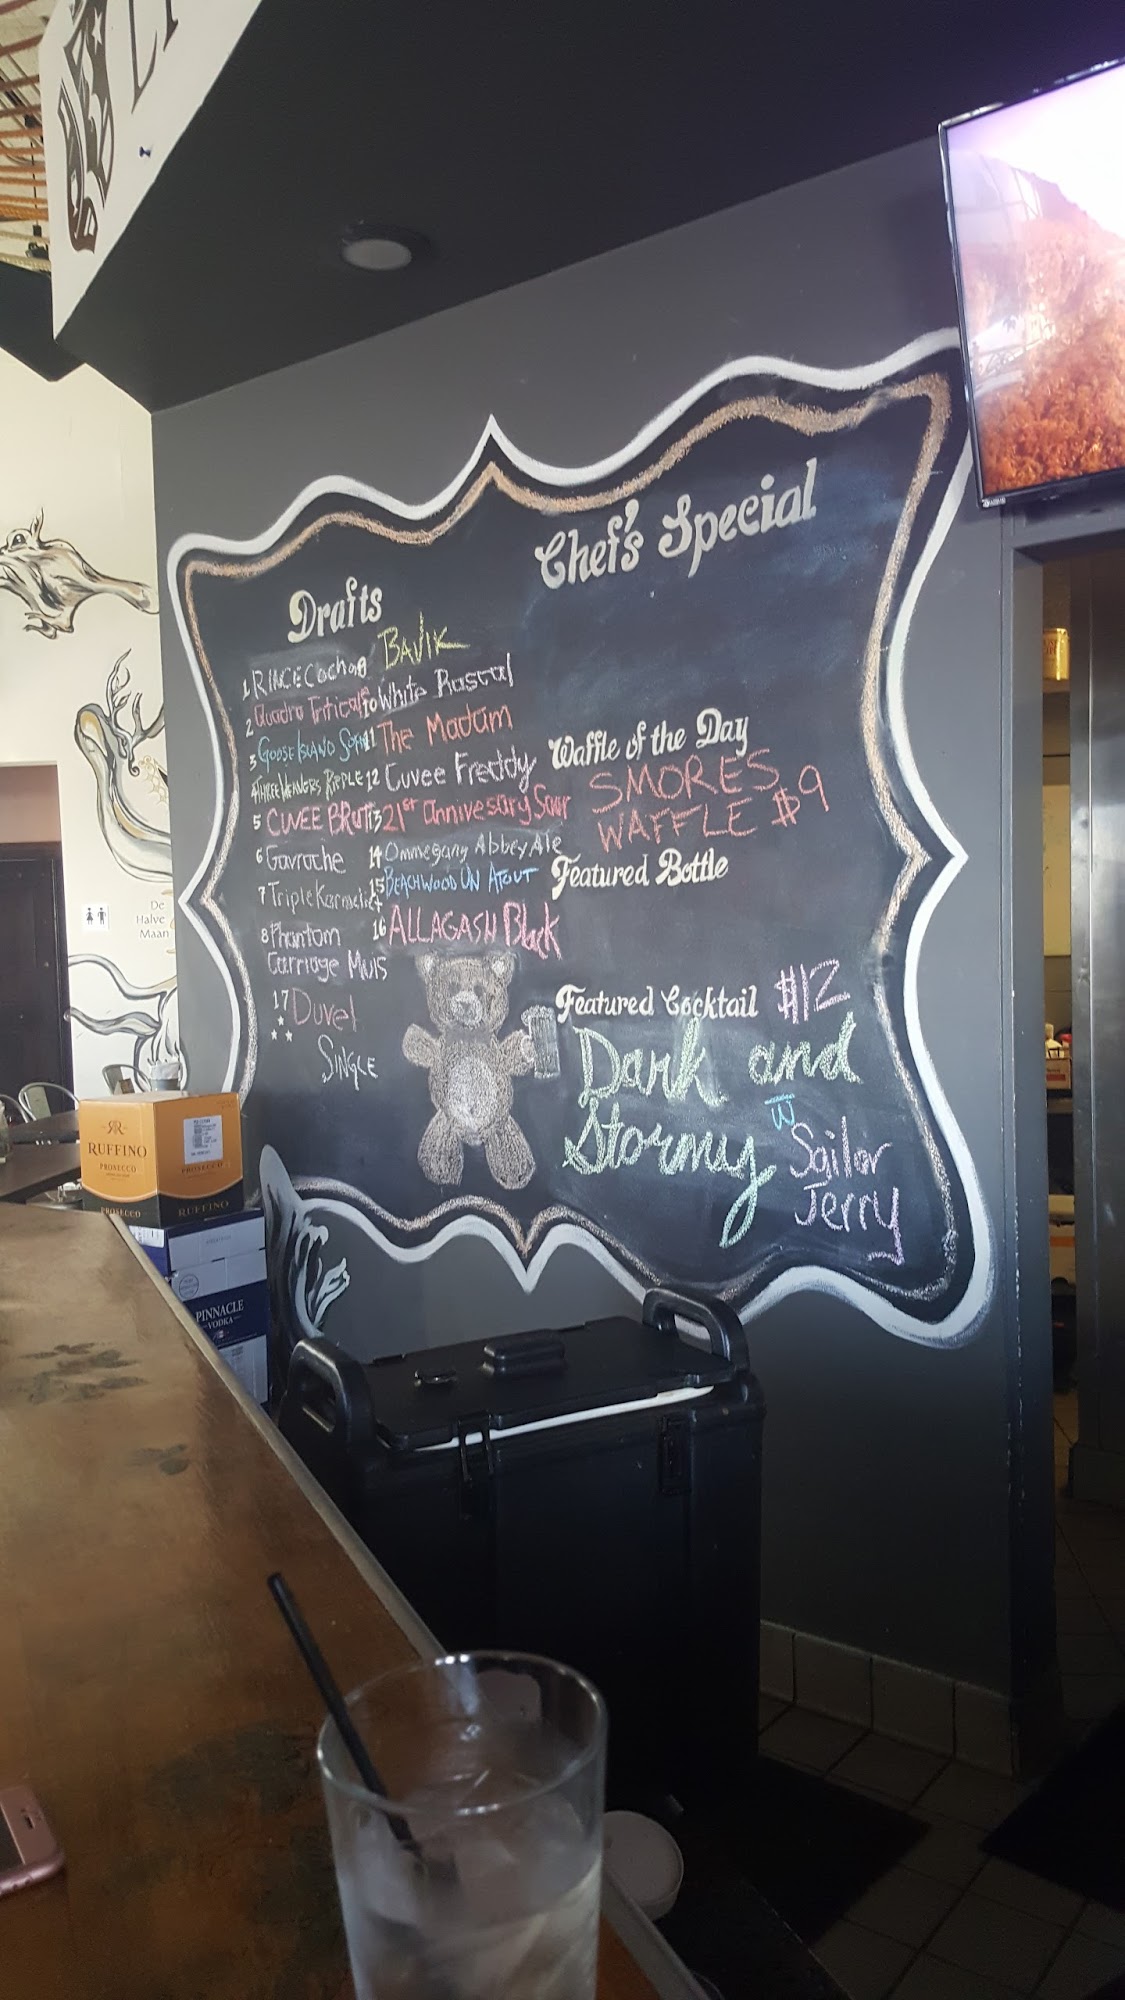 Chef's Special
Drafts
1 RINCE Cochon
2 Quadro Triticale
3 GOOSE ISLAND
4 THREE WEAVERS RIPPLE
5 CUVEE BRUT
6 Gavroche
7 Triple Karmeliet
8 Phantom
Carriage Muis
17 Duvel
SINGLE
9 BAVIK
10 White Rascal
11 The Madam
12 Cuvee Freddy
13 21st annivesary Sour
14 Ommegang Abbey Ale
15 BEACHWOOD UN ATOUT
16 ALLAGASH Black
Waffle of the Day
SMORES
WAFFLE $9
Featured Bottle
Featured Cocktail $12
Dark and
Stormy w/ Sailor
Jerry
De
Halve
Maan
RR
RUFFINO
PROSECCO
PROSECCO
PROSECCO
RUFFINO
PINNACLE
VODKA